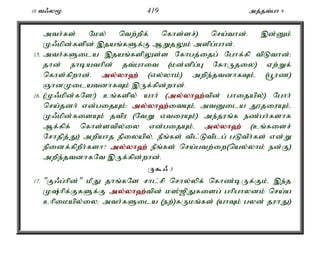 10 வஃலமூ 419 அத்தவ்பா 9
அவர்கள் மேல் வெற்றிக் கொள்ளச் செய்வான். இன்னும்
மூஃமின்களின் இதயங்களுக்கு ஆறுதலும் அளிப்பான்.
15. அவர்களுடைய இதயங்களிலுள்ள கோபத்தைப் போக்கி விடுவான்;
தான் நாடியவரின் தவ்பாவை (மன்னிப்பு கோருதலை) ஏற்றுக்
கொள்கிறான். அல்லாஹ் (எல்லாம்) அறிந்தவனாகவும், (பூரண)
ஞானமுடையவனாகவும் இருக்கின்றான்.
16. (மூஃமின்களே!) உங்களில் யார் (அல்லாஹ்வின் பாதையில்) போர்
செய்தனர் என்பதையும்; அல்லாஹ்வையும், அவனுடைய தூதரையும்,
மூஃமின்களையும் தவிர (வேறு எவரையும்) அந்தரங்க நண்பர்களாக
ஆக்கிக் கொள்ளவில்லை என்பதையும், அல்லாஹ் (உங்களைச்
சோதித்து) அறியாத நிலையில், நீங்கள் விட்டுவிடப் படுவீர்கள் என்று
நினைக்கிறீர்களா? அல்லாஹ் நீங்கள் செய்பவற்றை(யெல்லாம் நன்கு)
அறிந்தவனாகவே இருக்கின்றான்.
ருகூஃ 3
17. "குஃப்ரின்" மீது தாங்களே சாட்சி சொல்லிக் கொண்டிருக்கும், இந்த
முஷ்ரிக்குகளுக்கு அல்லாஹ்வின் மஸ்ஜிதுகளைப் பரிபாலனம் செய்ய
உரிமையில்லை; அவர்களுடைய (நற்)கருமங்கள் (யாவும் பலன் தராது)